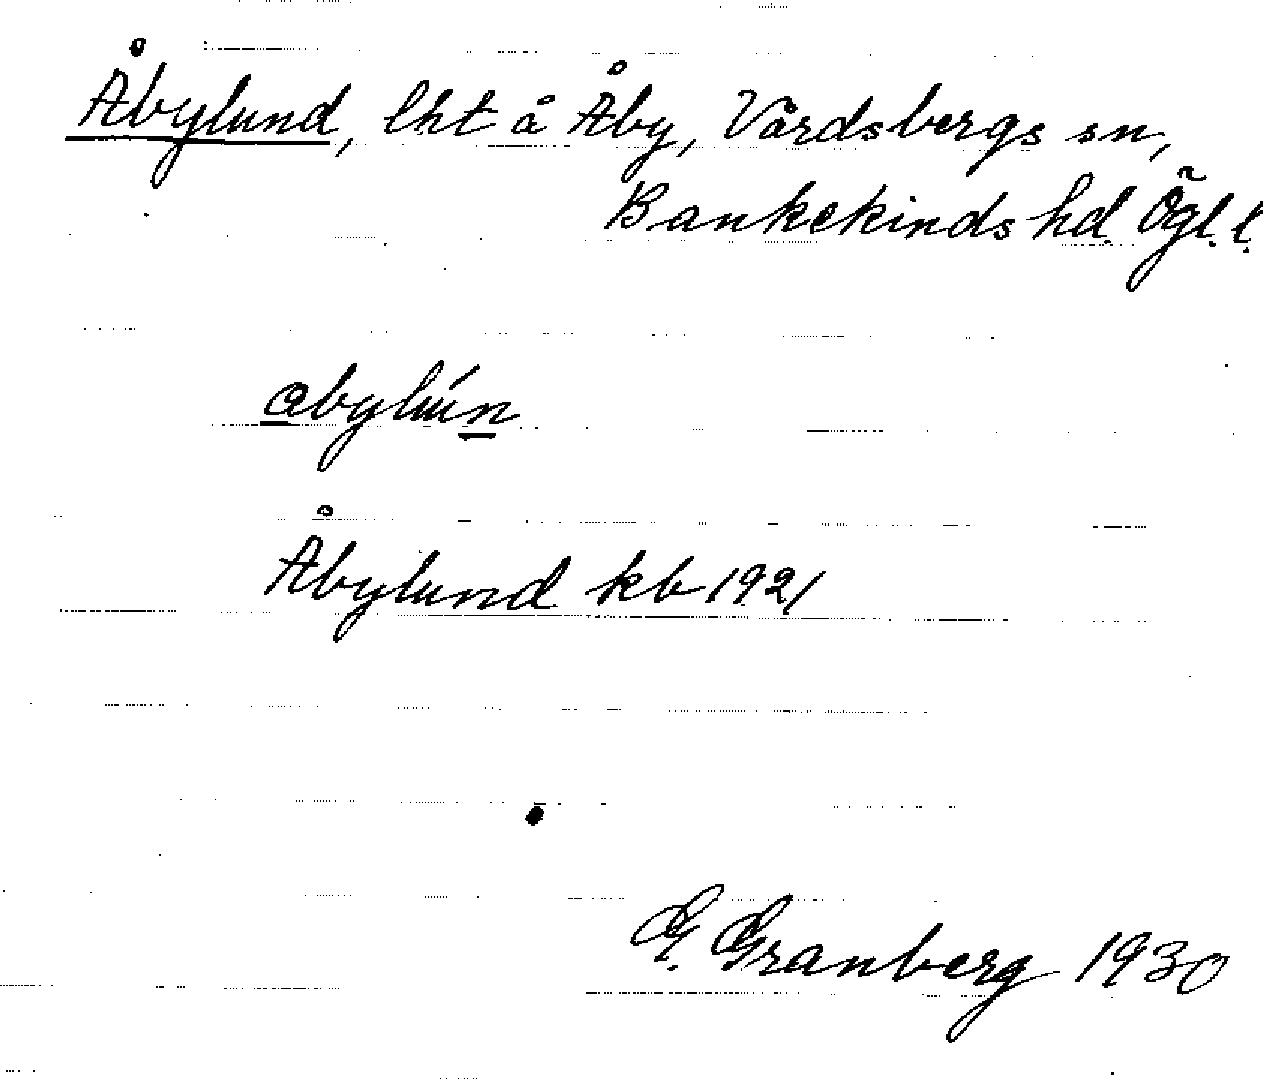 Åbylund, lht å Åby, Vårdsbergs sn,
Bankekinds hd Ögl. l.
abylún
Åbylund kb 1921
G. Granberg 1930